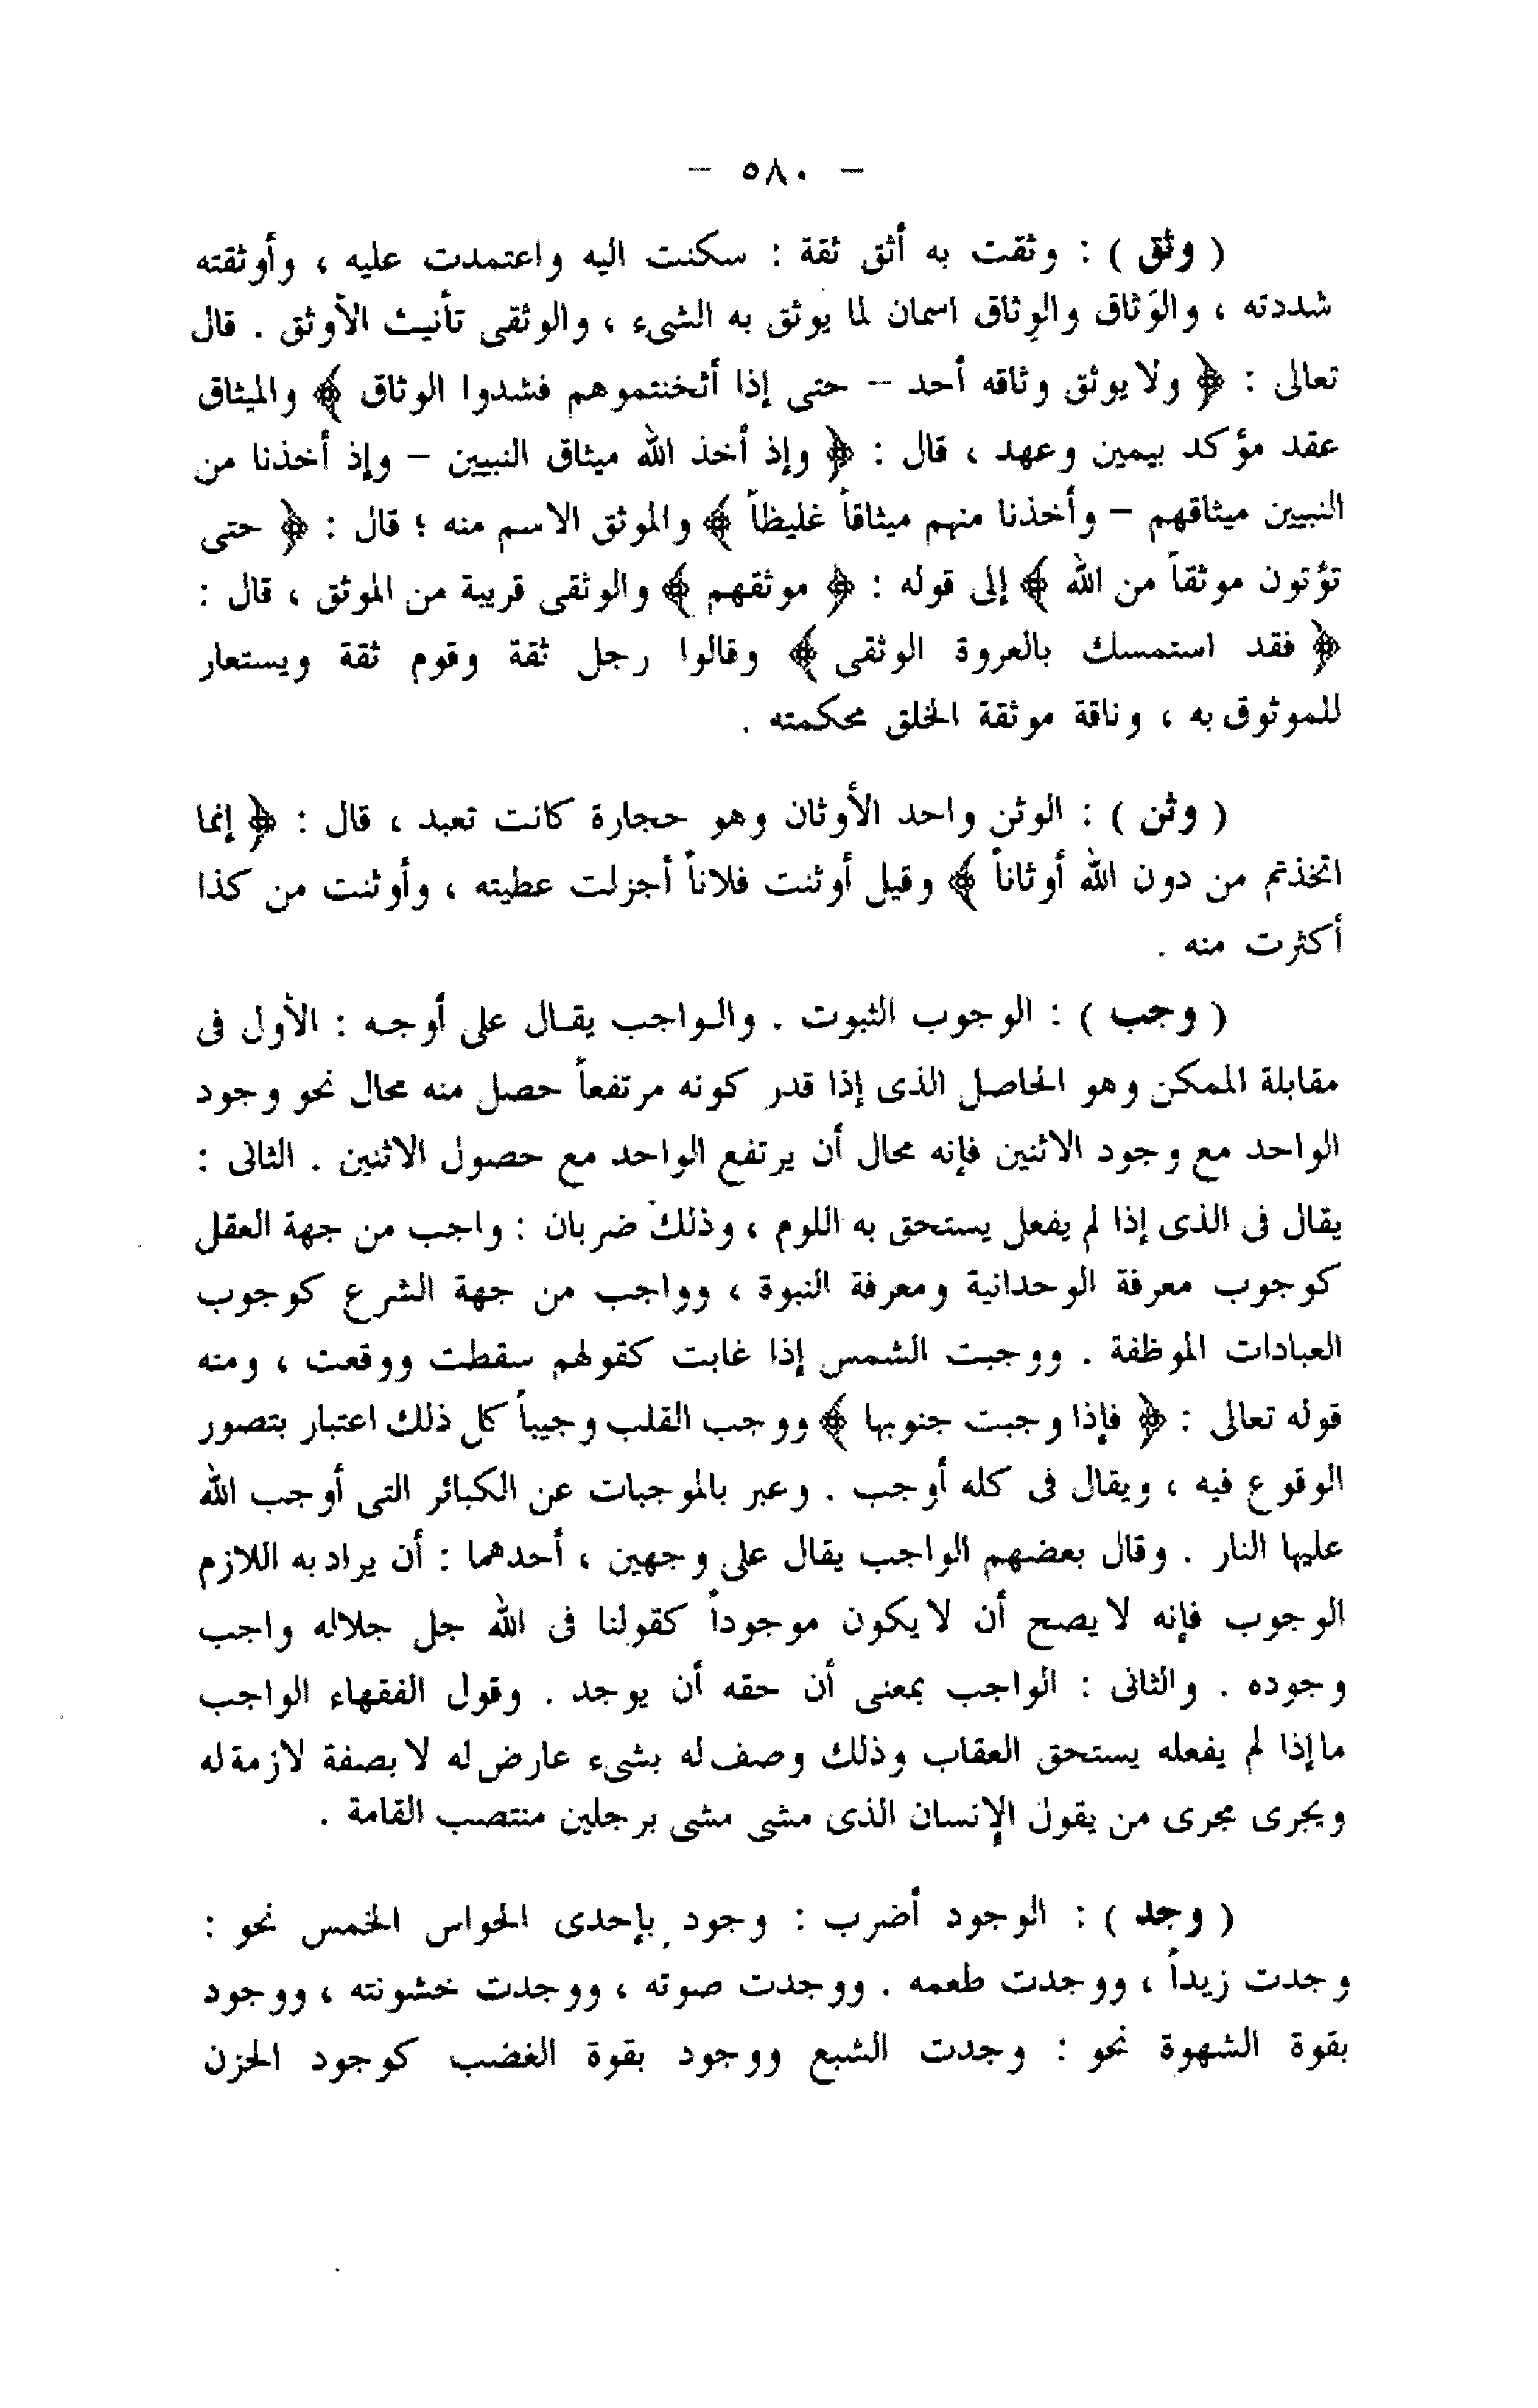 – ٥٨٠ –
( وثق ) : وثقت به أثق ثقة : سكنت اليه واعتمدت عليه ، وأوثقته
شددته ، والوَثاق والوِثاق اسمان لما يوثق به الشىء ، والوثقى تأنيث الأوثق . قال
تعالى : ﴿ ولا يوثق وثاقه أحد – حتى إذا أثخنتموهم فشدوا الوثاق ﴾ والميثاق
عقد مؤكد بيمين وعهد ، قال : ﴿ وإذ أخذ الله ميثاق النبيين – وإذ أخذنا من
النبيين ميثاقهم – وأخذنا منهم ميثاقاً غليظاً ﴾ والموثق الاسم منه ؛ قال : ﴿ حتى
تؤتون موثقاً من الله ﴾ إلى قوله : ﴿ موثقهم ﴾ والوثقى قريبة من الموثق ، قال :
﴿ فقد استمسك بالعروة الوثقى ﴾ وقالوا رجل ثقة وقوم ثقة ويستعار
للموثوق به ، وناقة موثقة الخلق محكمته .
( وثن ) : الوثن واحد الأوثان وهو حجارة كانت تعبد ، قال : ﴿ إنما
اتخذتم من دون الله أوثاناً ﴾ وقيل أوثنت فلاناً أجزلت عطيته ، وأوثنت من كذا
أكثرت منه .
( وجب ) : الوجوب الثبوت . والواجب يقال على أوجه : الأول فى
مقابلة الممكن وهو الحاصل الذى إذا قدر كونه مرتفعاً حصل منه محال نحو وجود
الواحد مع وجود الاثنين فإنه محال أن يرتفع الواحد مع حصول الاثنين . الثانى :
يقال فى الذى إذا لم يفعل يستحق به اللوم ، وذلك ضربان : واجب من جهة العقل
كوجوب معرفة الوحدانية ومعرفة النبوة ، وواجب من جهة الشرع كوجوب
العبادات الموظفة . ووجبت الشمس إذا غابت كقولهم سقطت ووقعت ، ومنه
قوله تعالى : ﴿ فإذا وجبت جنوبها ﴾ ووجب القلب وجيباً كل ذلك اعتبار بتصور
الوقوع فيه ، ويقال فى كله أوجب . وعبر بالموجبات عن الكبائر التى أوجب الله
عليها النار . وقال بعضهم الواجب يقال على وجهين ، أحدهما : أن يراد به اللازم
الوجوب فإنه لا يصح أن لا يكون موجوداً كقولنا فى الله جل جلاله واجب
وجوده . والثانى : الواجب بمعنى أن حقه أن يوجد . وقول الفقهاء الواجب
ما إذا لم يفعله يستحق العقاب وذلك وصف له بشىء عارض له لا بصفة لازمة له
ويجرى مجرى من يقول الإنسان الذى مشى مشى برجلين منتصب القامة .
( وجد ) : الوجود أضرب : وجود بإحدى الحواس الخمس نحو :
وجدت زيداً ، ووجدت طعمه . ووجدت صوته ، ووجدت خشونته ، ووجود
بقوة الشهوة نحو : وجدت الشبع ووجود بقوة الغضب كوجود الحزن